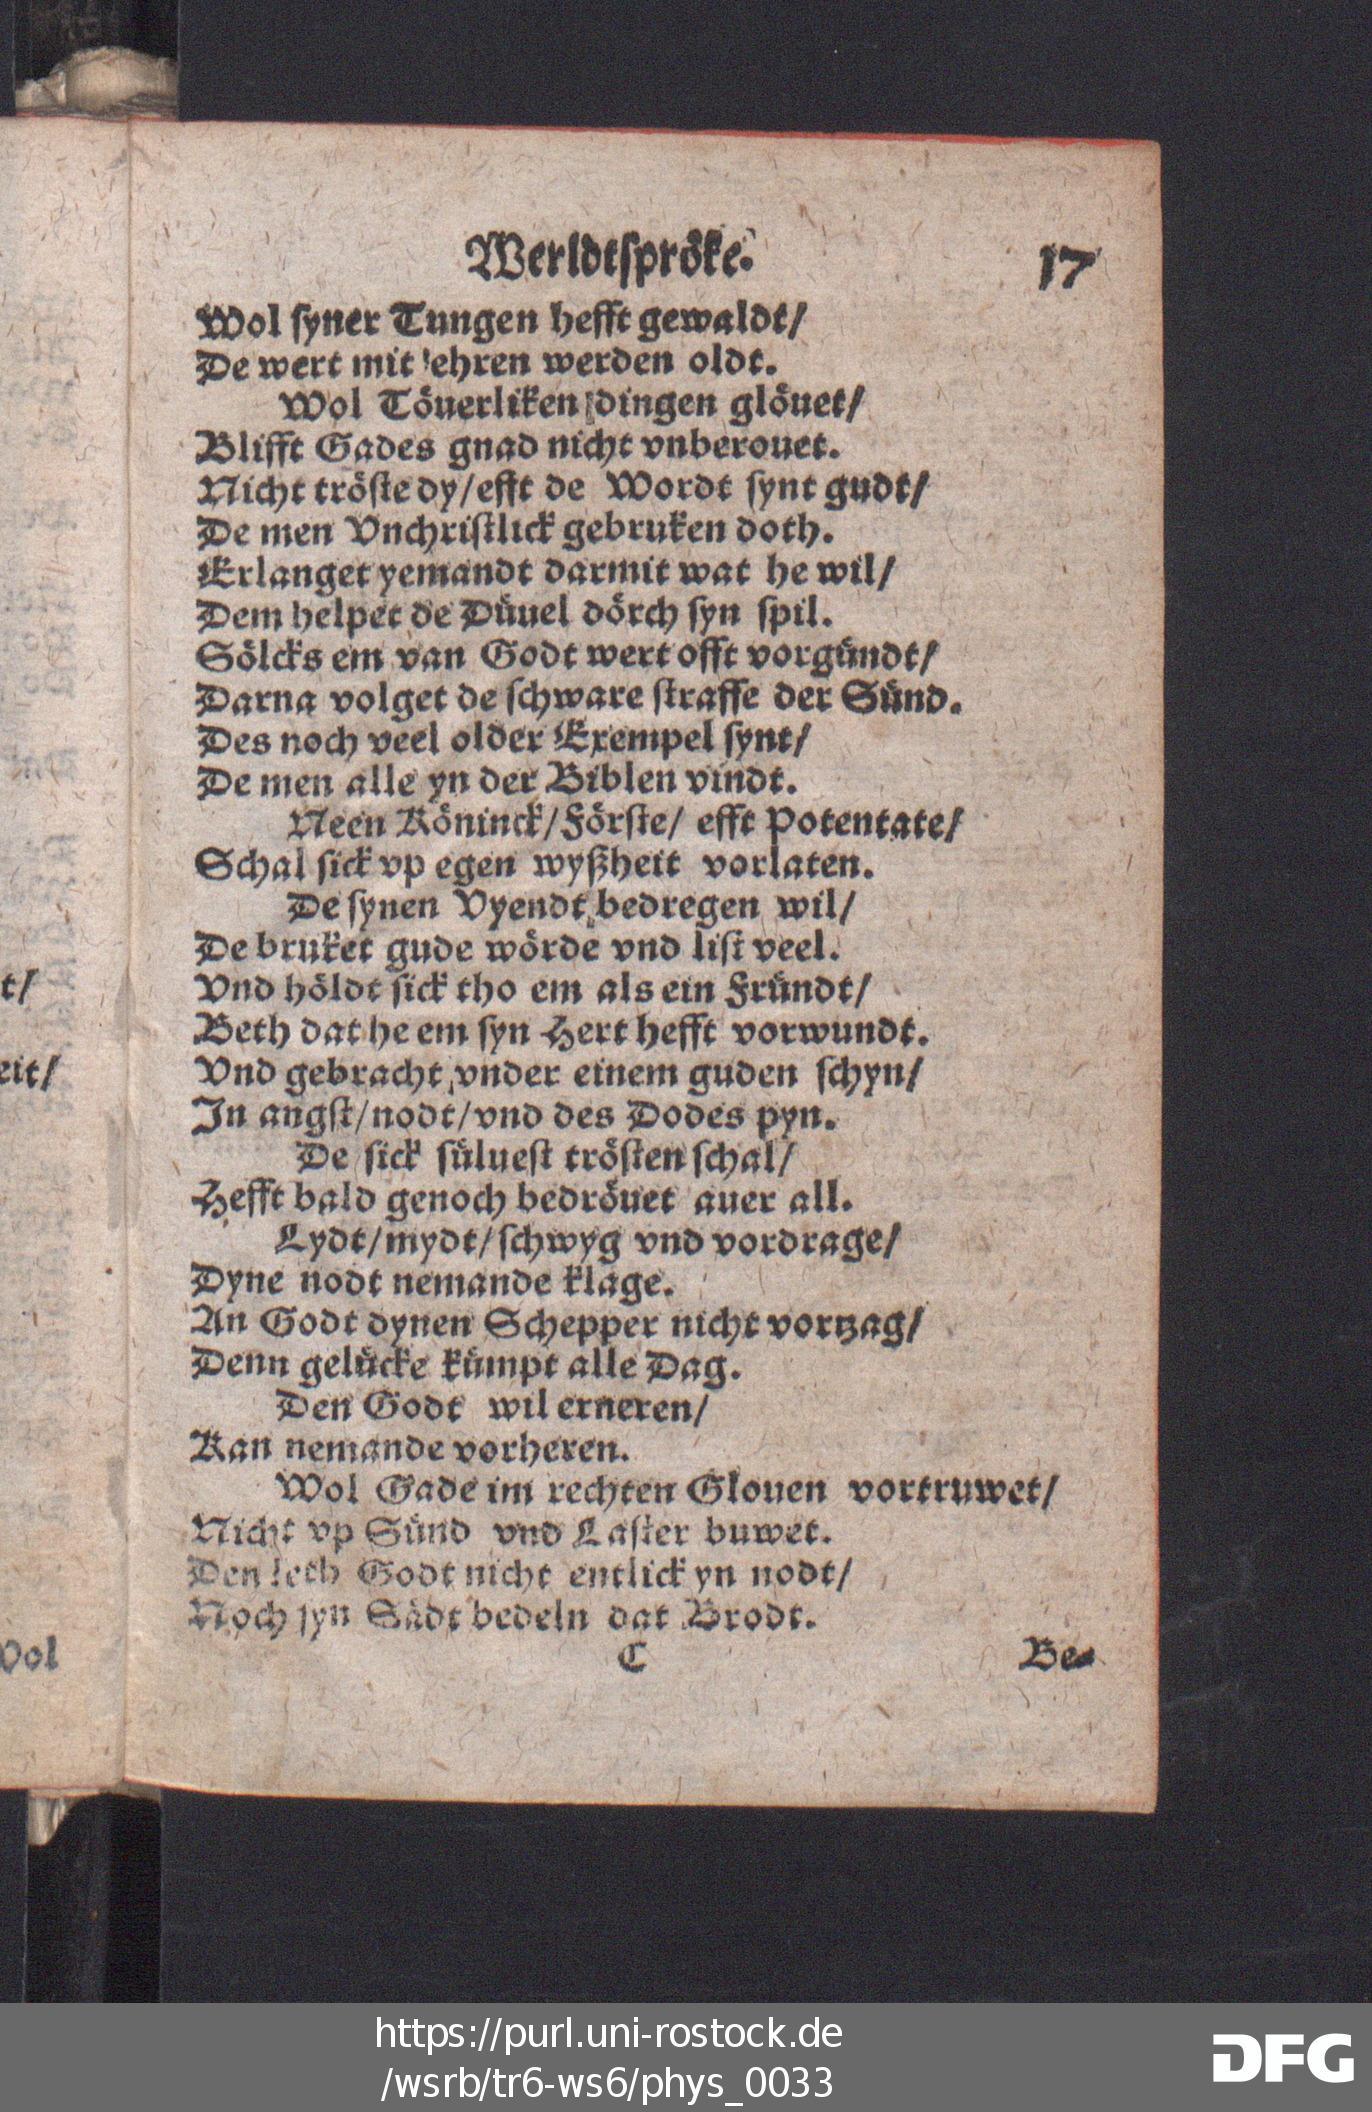 Werldtspröke. 17
Wol syner Tungen hefft gewaldt/
De wert mit ehren werden oldt.
Wol Töuerliken dingen glöuet/
Blifft Gades gnad nicht vnberouet.
Nicht tröste dy/efft de Wordt synt gudt/
De men Vnchristlick gebruken doth.
Erlanget yemandt darmit wat he wil/
Dem helpet de Düuel dörch syn spil.
Sölcks em van Godt wert offt vorgündt/
Darna volget de schware straffe der Sünd.
Des noch veel older Exempel synt/
De men alle yn der Biblen vindt.
Neen Köninck/Förste/ efft Potentate/
Schal sick vp egen wyßheit vorlaten.
De synen Vyendt bedregen wil/
De bruket gude wörde vnd list veel.
Vnd höldt sick tho em als ein Fründt/
Beth dat he em syn Hert hefft vorwundt.
Vnd gebracht vnder einem guden schyn/
In angst/nodt/vnd des Dodes pyn.
De sick süluest trösten schal/
Hefft bald genoch bedröuet auer all.
Lydt/mydt/schwyg vnd vordrage/
Dyne nodt nemande klage.
An Godt dynen Schepper nicht vortzag/
Denn gelücke kümpt alle Dag.
Den Godt wil erneren/
Kan nemande vorheren.
Wol Gade im rechten Glouen vortruwet/
Nicht vp Sünd vnd Laster buwet.
Den leth Godt nicht entlick yn nodt/
Noch syn Sädt bedeln dat Brodt.
C Be-
t/
eit/
Wol
https://purl.uni-rostock.de
/wsrb/tr6-ws6/phys_0033
DFG